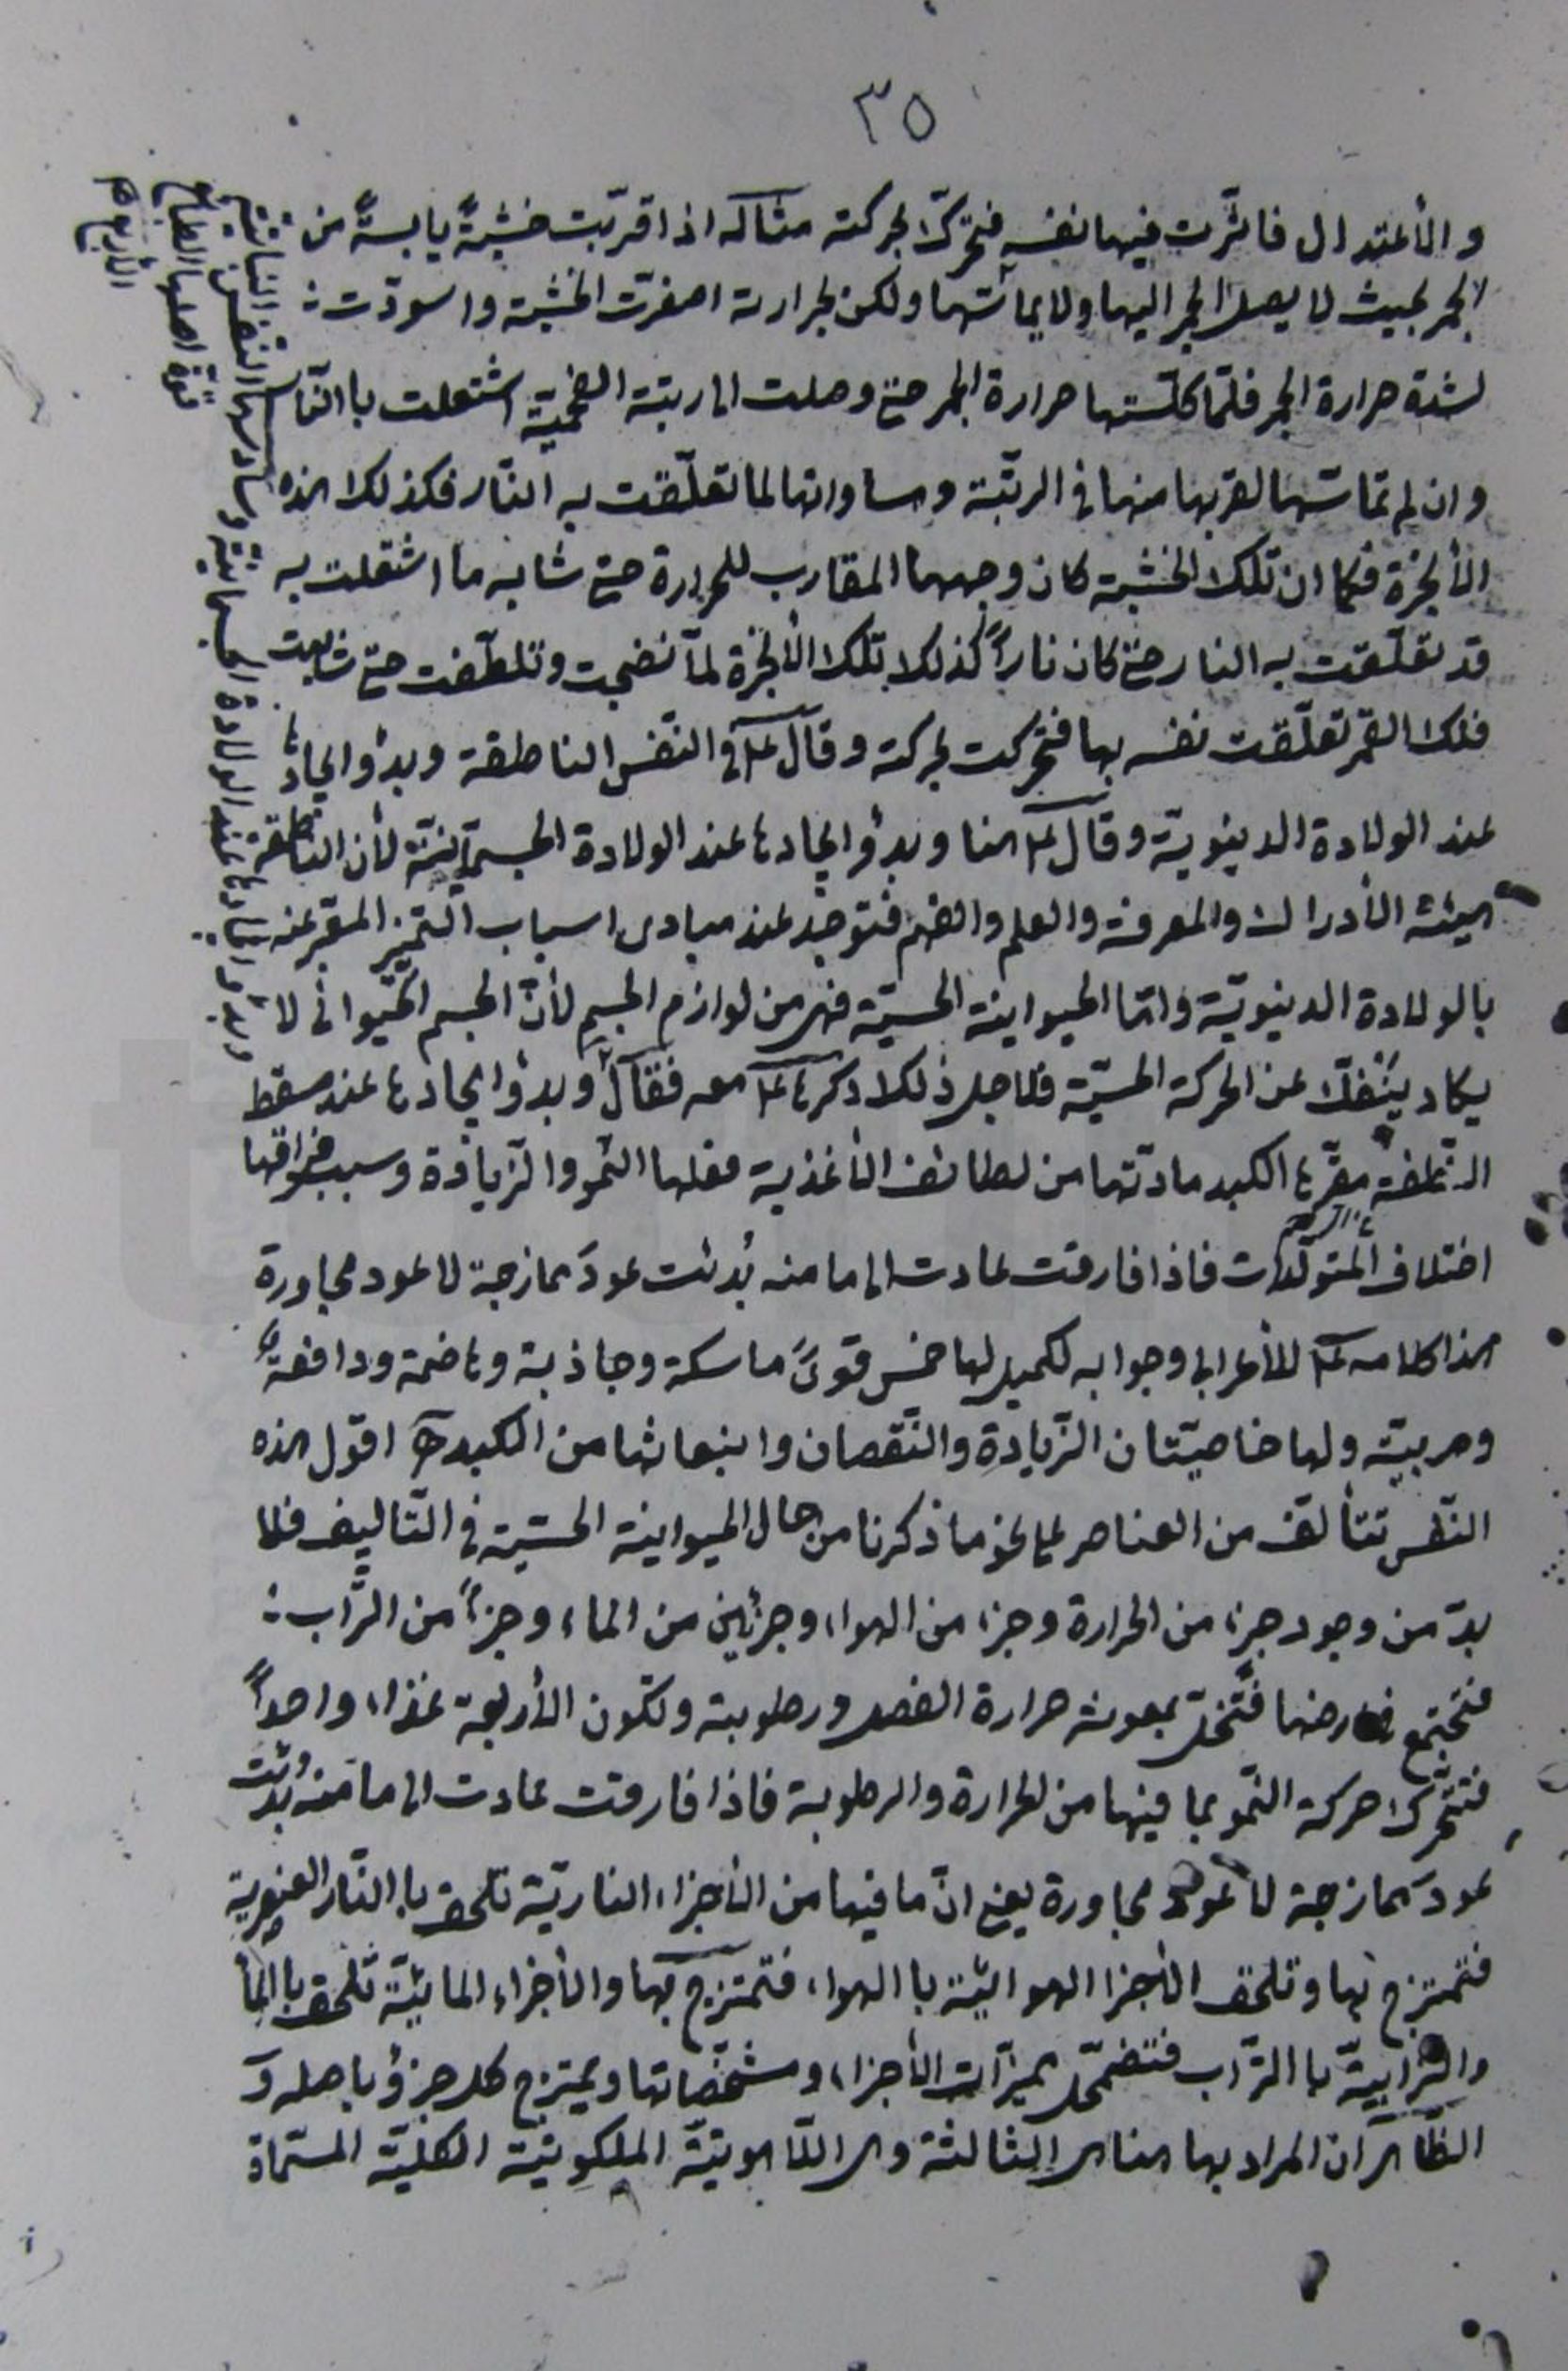 ٣٥
والأعتدال فاثّرت فيها نفسه فتحرّك لحركته مثاله اذا قرّبت خشبةً يابسةً من
الجمر بحيث لا يصل الجمر اليها ولا يماسّها ولكن لحرارته اصفرّت الخشبة واسودّت
لشدة حرارة الجمر فلمّا كلّستها حرارة الجمر حتى وصلت الى رتبة الفحمية اشتعلت باالنّار
وان لم تماسّها لقربها منها فى الرتبة ومساواتها لما تعلّقت به النّار فكذلك هذه
الأبخرة فكما ان تلك الخشبة كان وجهها المقارب للحرارة حتى شابه ما اشتعلت به
قد تعلّقت به النار حتى كان ناراً كذلك تلك الأبخرة لمّا نضجت وتلطّفت حتى شابهت
فلك القمر تعلّقت نفسه بها فتحركت لحركته وقال ع فى النّفس الناطقة وبدؤ ايجادها
عند الولادة الدينويّة وقال ع هنا وبدؤ ايجادها عند الولادة الجسمانيّة لأن الناطقة
هيئة الأدراك والمعرفة والعلم والفهم فتوجد عند مبادى اسباب التّميز المعبّر عنه
بالولادة الدينويّة وامّا الحيوانية الحسيّة فهى من لوازم الجسم لأنّ الجسم الحيوانى لا
يكاد ينفكّ عن الحركة الحسيّة فلاجل ذلك ذكرها ع معه فقال وبدؤ ايجادها عند مسقط
النّطفة مقرّها الكبد مادّتها من لطائف الأغذية فعلها النّمو والزّيادة وسبب فراقها
اختلاف المتولّدات فاذا فارقت عادت الى ما منه بُدئت عودَ ممازجة لا عود مجاورة
هذا كلامه ع للأعرابى وجوابه لكميل لها خمس قوىً ماسكة وجاذبة وهاضمة ودافعة
ومربية ولها خاصيّتان الزّيادة والنّقصان وانبعاثها من الكبد اقول هذه
النّفس تتألّف من العناصر على نحو ما ذكرنا من حال الحيوانية الحسّية فى التّاليف فلا
بدّ من وجود جزء من الحرارة وجزء من الهواء وجزئين من الماء وجزء من التراب
فتجتمع فى ارضها فتنحلّ بمعونة حرارة الفصل ورطوبته وتكون الأربعة غذاء واحداً
فتتحرّك حركة النّمو بما فيها من الحرارة والرطوبة فاذا فارقت عادت الى ما منه بُدئت
عودَ ممازجة لا عود مجاورة يعنى انّ ما فيها من الأجزاء الناريّة تلحق باالنّار العنصرية
فتمتزج بها وتلحق الأجزا الهوائيّة باالهواء فتمتزج بها والأجزاء المائيّة تلحق باالماء
والترابيّة باالتّراب فتضمحلّ مميزات الأجزاء ومشخّصاتها ويمتزج كل جزؤ باصله و
الظّاهر ان المراد بها هنا هى الثالثة وهى اللّاهوتيّة الملكوتيّة الكليّة المسمّاة
قوّة اصلها الطبايع
الأربع
وبدؤ ايجادها عند الولادة الجسمانية